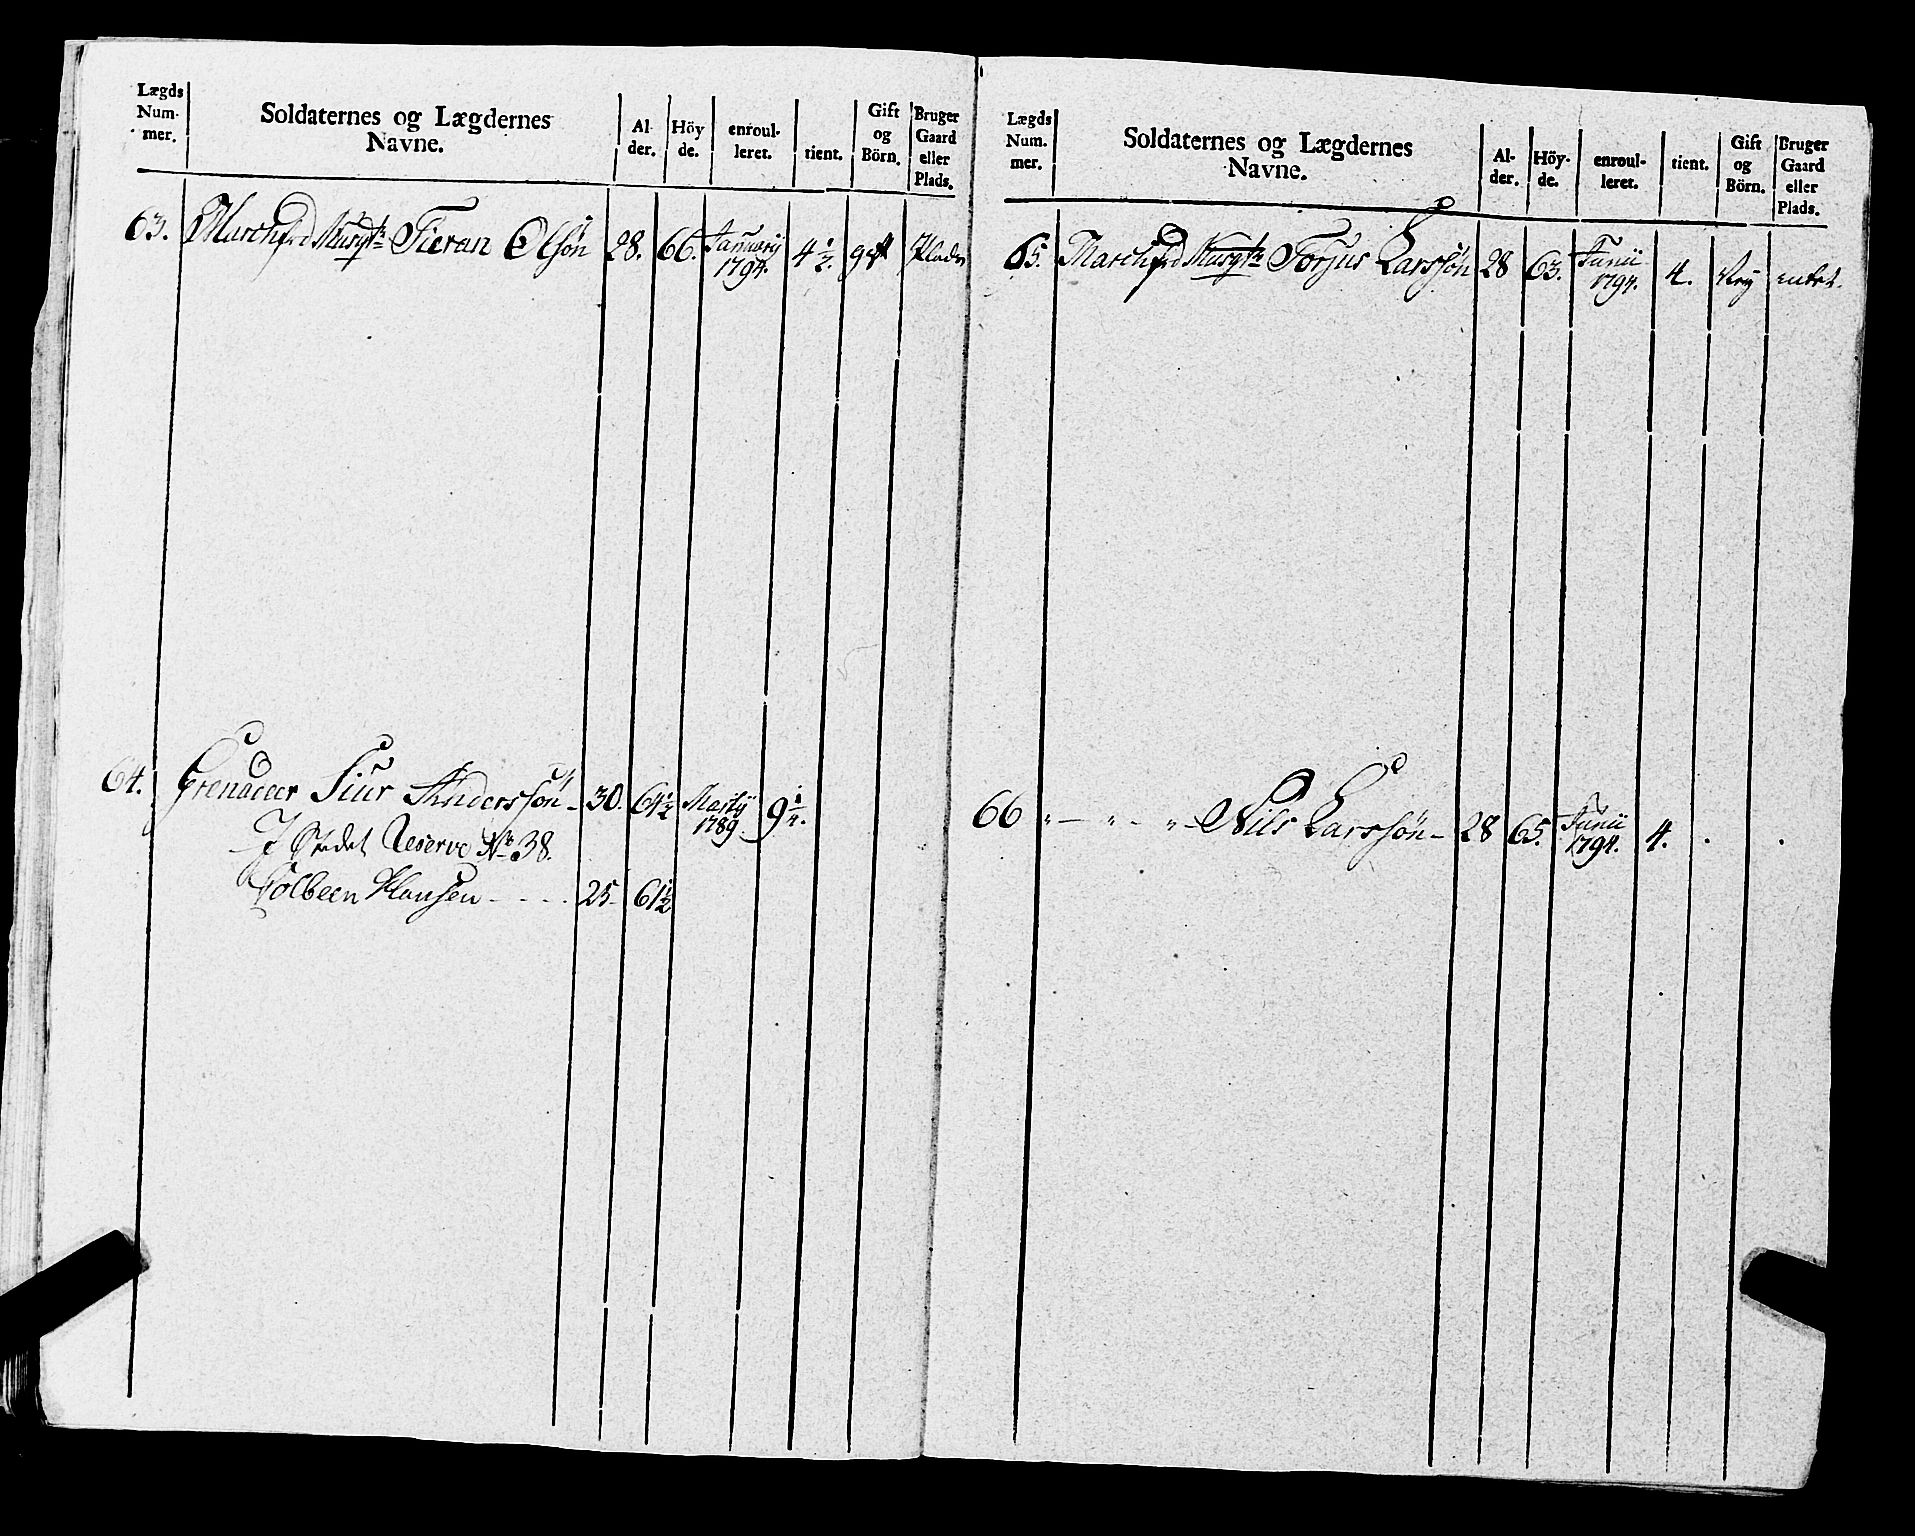 Lægds Num- mer. | Soldaternes og Lægdernes Navne. | Al- der. | Höy de. | enroul- leret. | tient. | Gift og Börn. | Bruger Gaard eller Plads.
63. Marchfrd Musqtr Tieran Olsøn 28. 66. Januarij 1794. 4 1/2. gift Plads
64. Grenadeer Siur Anderssøn - 30. 64 1/2 Martij 1789. 9 1/4.
I Stedet Reserve No 38.
Colbeen Hansen - - - - 25 - 61 1/2
Lægds Num. mer. | Soldaternes og Lægdernes Navne. | Al- der. | Höy- de. | enroul- leret. | tient. | Gift og Börn. | Bruger Gaard eller Plads.
65. Marchfrd Musqtr Torjus Larssøn 28 63. Junii 1794. 4. Ney intet.
66 " — " — " — Nils Larssøn - 28 65. Junii 1794. 4. . .